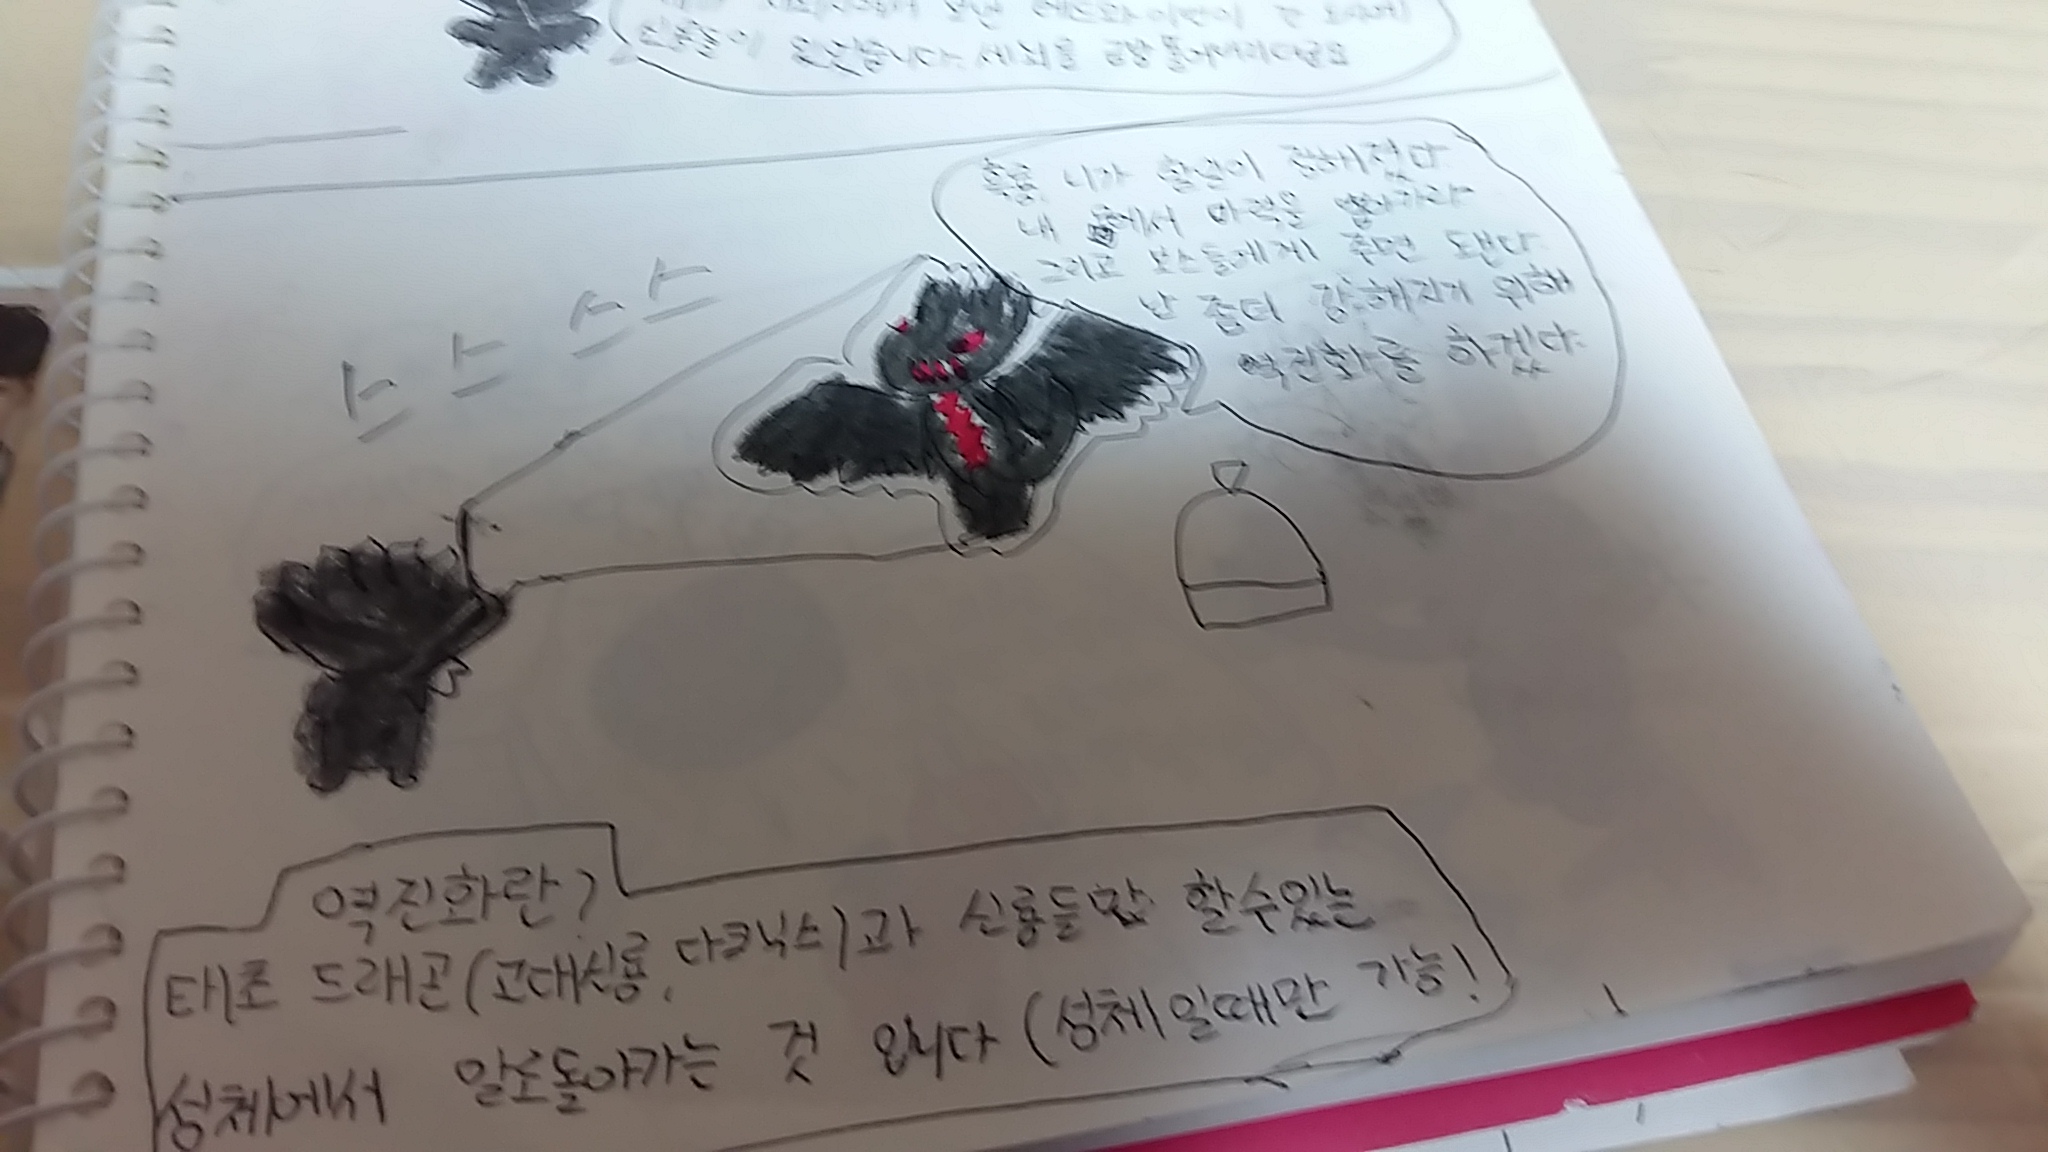 신룡들이 세뇌를
흑룡, 니가 훨씬이 강해졌다
내 몸에서 마력을 뽑아가라
그리고 보스들에게 주면 됀다
난 좀더 강해지기 위해
역진화를 하겠다
스 스 스스
역진화란?
태초 드래곤(고대신룡, 다크닉스)과 신룡들만 할수있는
성체에서 알로돌아가는 것 입니다 (성체일때만 가능!